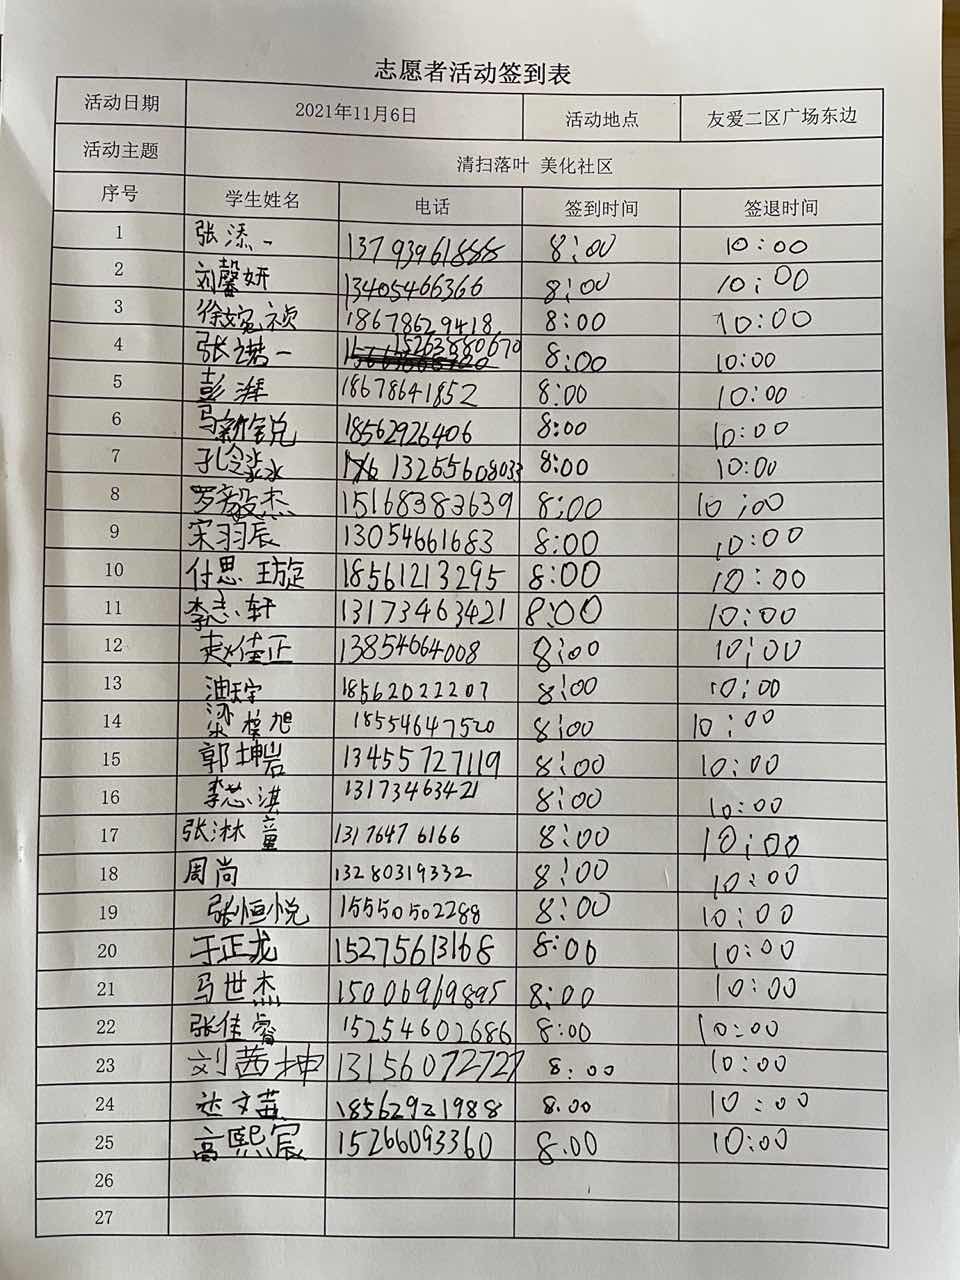 志愿者活动签到表
活动日期 2021年11月6日 活动地点 友爱二区广场东边
活动主题 清扫落叶 美化社区
序号 学生姓名 电话 签到时间 签退时间
1 张添一 13793961888 8:00 10:00
2 刘馨妍 13405466366 8:00 10:00
3 徐婉祯 18678629418 8:00 10:00
4 张诺一 15263880670 8:00 10:00
5 彭湃 18678641852 8:00 10:00
6 马新锐 18562926406 8:00 10:00
7 孔令淼 13255608033 8:00 10:00
8 罗毅杰 15168383639 8:00 10:00
9 宋羽辰 13054661683 8:00 10:00
10 付思璇 18561213295 8:00 10:00
11 李志轩 13173463421 8:00 10:00
12 赵佳正 13854664008 8:00 10:00
13 18562022207 8:00 10:00
14 梁 旭 18554647520 8:00 10:00
15 郭坤岩 13455727119 8:00 10:00
16 李芯淇 13173463421 8:00 10:00
17 张淋童 13176476166 8:00 10:00
18 周尚 13280319332 8:00 10:00
19 张恒悦 15550502288 8:00 10:00
20 于正龙 15275613168 8:00 10:00
21 马世杰 15006969895 8:00 10:00
22 张佳睿 15254602686 8:00 10:00
23 刘茜坤 13156072727 8:00 10:00
24 达文 18562921988 8.00 10:00
25 高熙宸 15266093360 8.00 10:00
26
27